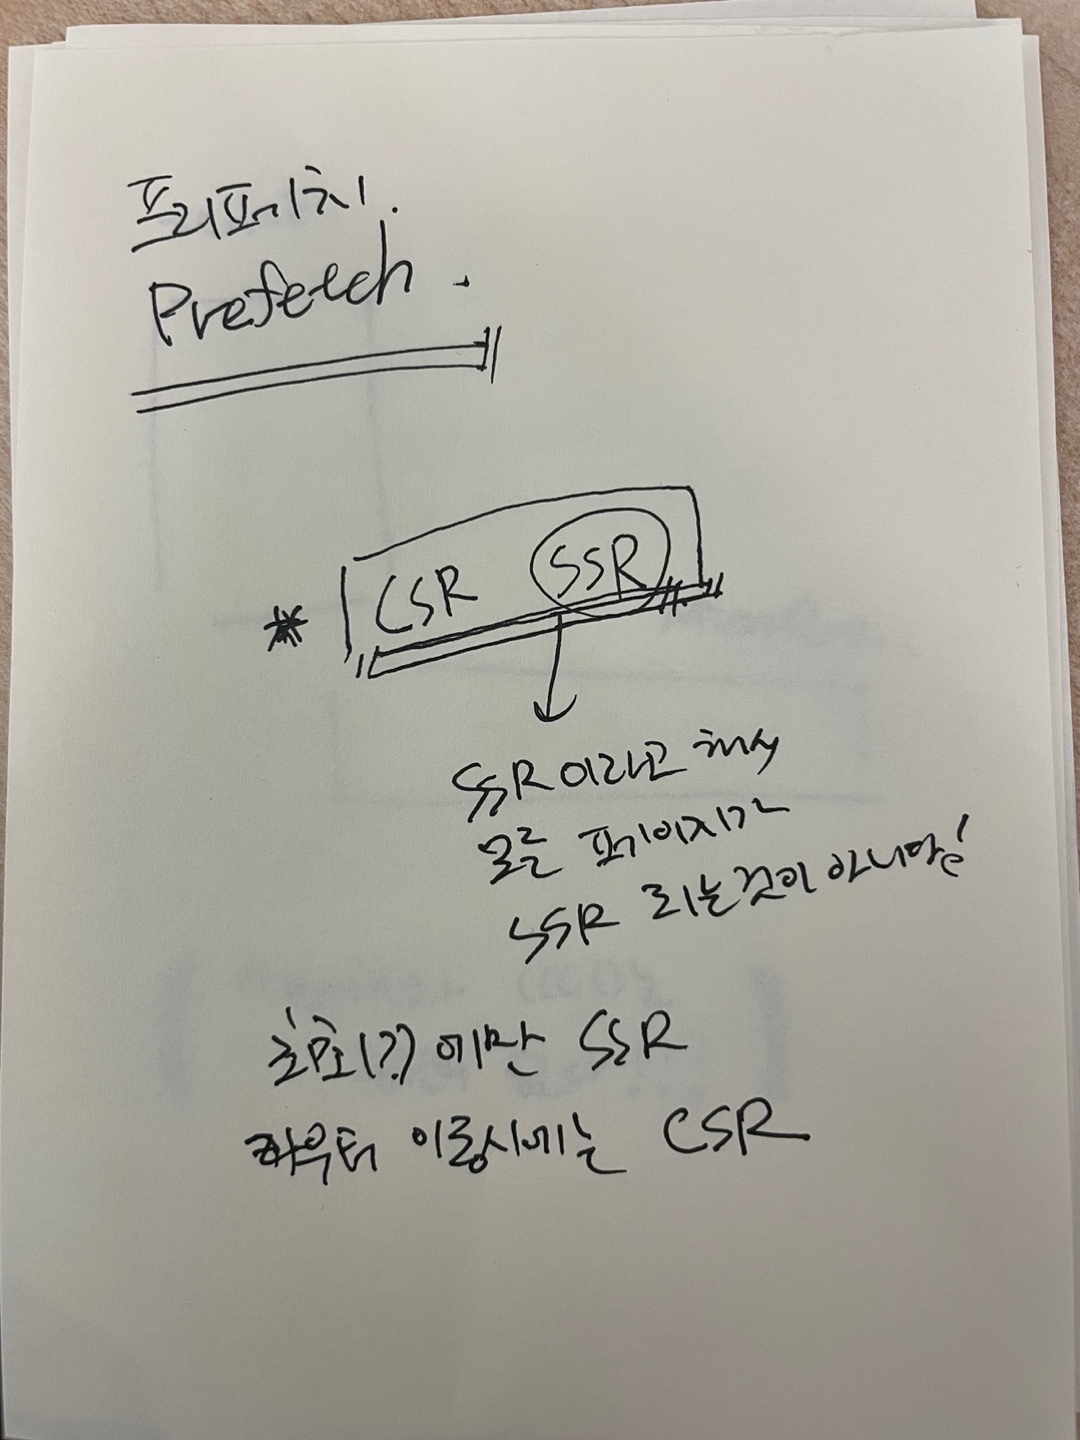 프리페치.
Prefetch.
* CSR SSR
SSR이라고 해서
모든 페이지가
SSR 되는것이 아니며!
최초(?)에만 SSR
라우터 이동시에는 CSR